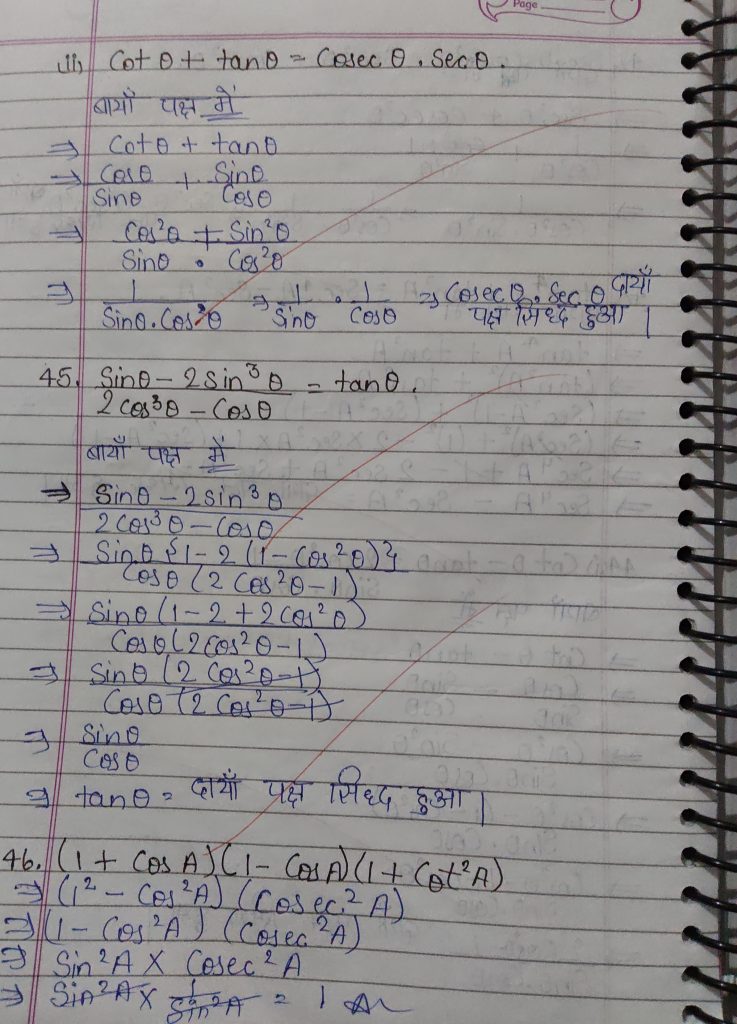 Page
(ii) Cot θ + tanθ = Cosec θ . Sec θ .
बायाँ पक्ष में
⇒ Cot θ + tanθ
⇒ Cosθ/Sinθ + Sinθ/Cosθ
⇒ Cos²θ + Sin²θ / Sinθ . Cos²θ
⇒ 1/Sinθ.Cos²θ ⇒ 1/Sinθ . 1/Cosθ ⇒ Cosecθ . Sec θ दायाँ
पक्ष सिध्द हुआ |
45. Sinθ - 2Sin³θ / 2Cos³θ - Cosθ = tanθ .
बायाँ पक्ष में
⇒ Sinθ - 2Sin³θ / 2Cos³θ - Cosθ
⇒ Sinθ {1 - 2 (1 - Cos²θ)} / Cosθ (2 Cos²θ - 1)
⇒ Sinθ (1 - 2 + 2Cos²θ) / Cosθ (2Cos²θ - 1)
⇒ Sinθ (2 Cos²θ - 1) / Cosθ (2 Cos²θ - 1)
⇒ Sinθ / Cosθ
⇒ tanθ = दायाँ पक्ष सिध्द हुआ |
46. (1 + Cos A) (1 - Cos A) (1 + Cot²A)
⇒ (1² - Cos²A) (Cosec² A)
⇒ (1 - Cos²A) (Cosec²A)
⇒ Sin²A × Cosec²A
⇒ Sin²A × 1/Sin²A = 1